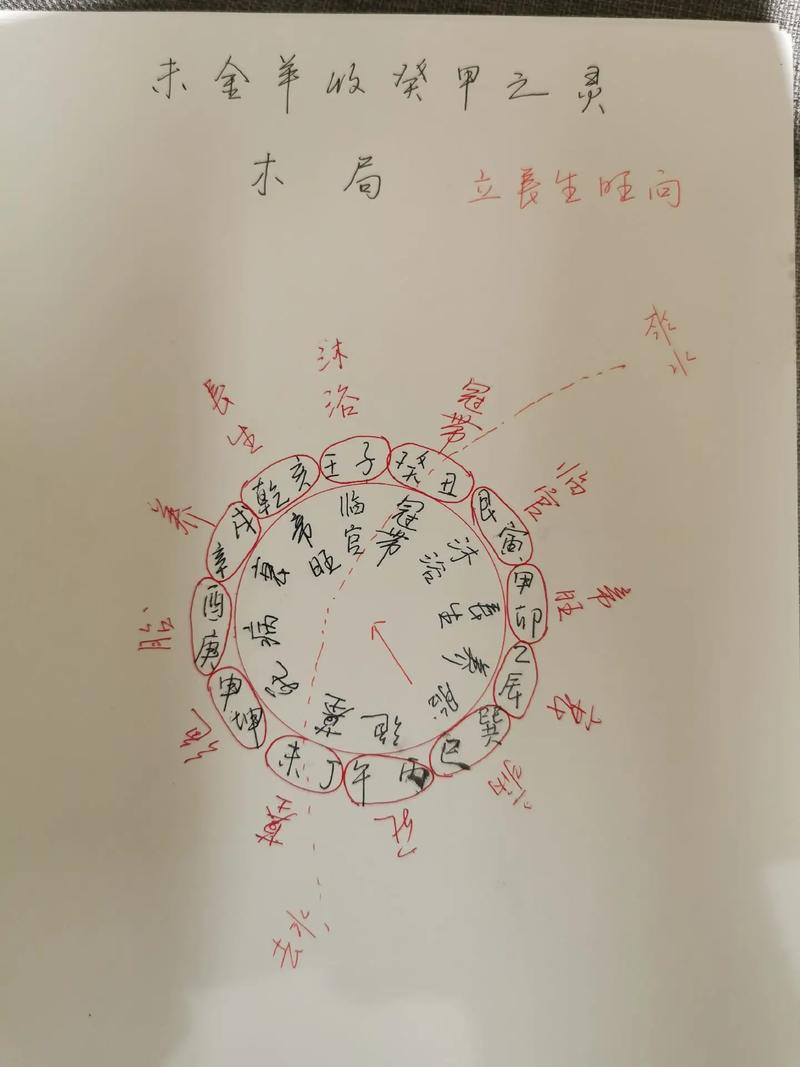 未金羊收癸甲之灵
木局
立長生旺向
来水
沐浴
冠带
临官
帝旺
衰
病
死
墓
绝
胎
养
長生
壬子
癸丑
艮寅
甲卯
乙辰
巽巳
丙午
丁未
坤申
庚酉
辛戌
乾亥
临官
冠带
沐浴
長生
养
胎
绝
墓
死
病
衰
帝旺
去水